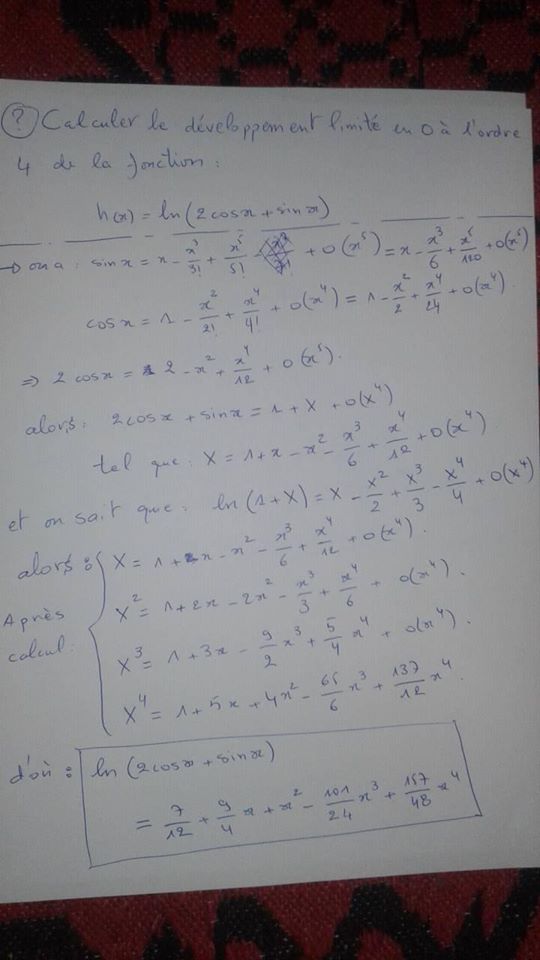 ? Calculer le développement limité en 0 à l'ordre
4 de la fonction :
h(x) = ln(2cosx + sinx)
→ on a : sin x = x - x³/3! + x⁵/5! + o(x⁵) = x - x³/6 + x⁵/120 + o(x⁵)
cos x = 1 - x²/2! + x⁴/4! + o(x⁴) = 1 - x²/2 + x⁴/24 + o(x⁴).
⇒ 2 cosx = 2 - x² + x⁴/12 + o(x⁵).
alors : 2cosx + sinx = 1 + X + o(X⁴)
tel que : X = 1 + x - x² - x³/6 + x⁴/12 + o(x⁴)
et on sait que : ln(1+X) = X - X²/2 + X³/3 - X⁴/4 + o(X⁴)
alors : X = 1 + x - x² - x³/6 + x⁴/12 + o(x⁴).
Après X² = 1 + 2x - 2x² - x³/3 + x⁴/6 + o(x⁴).
calcul : X³ = 1 + 3x - 9/2 x³ + 5/4 x⁴ + o(x⁴).
X⁴ = 1 + 5x + 4x² - 65/6 x³ + 137/12 x⁴.
d'où : ln (2cosx + sinx)
= 7/12 + 9/4 x + x² - 101/24 x³ + 157/48 x⁴